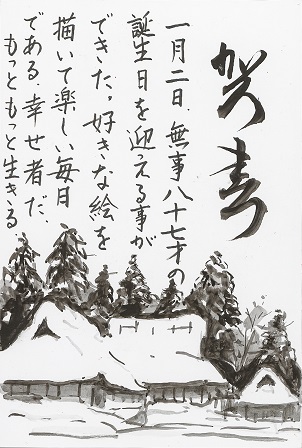 賀春
一月二日、無事八十七才の
誕生日を迎える事が
できた。好きな絵を
描いて楽しい毎日
である。幸せ者だ、
もっともっと生きる